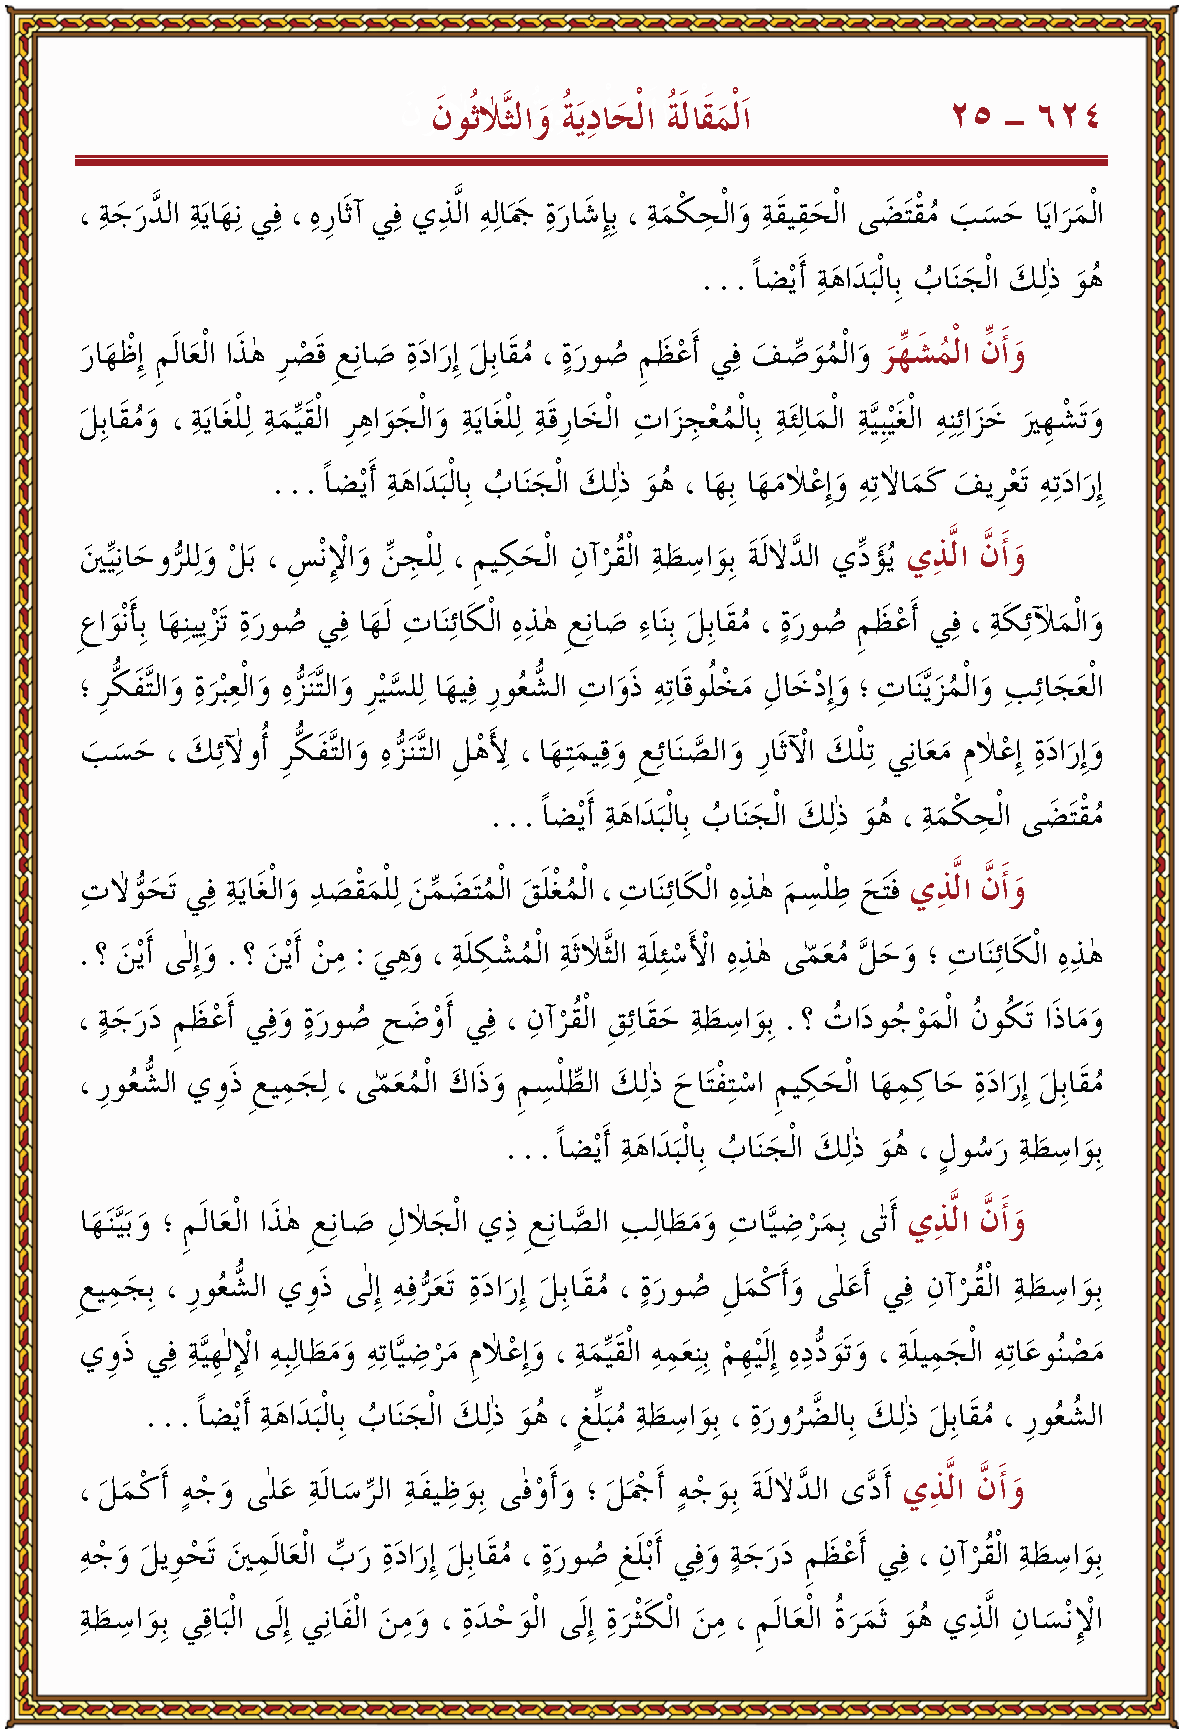 ٦٢٤ – ٢٥ اَلْمَقَالَةُ الْحَادِيَةُ وَالثَّلاٰثُونَ
الْمَرَايَا حَسَبَ مُقْتَضَى الْحَقِيقَةِ وَالْحِكْمَةِ ، بِإِشَارَةِ جَمَالِهِ الَّذِي فِي آثَارِهِ ، فِي نِهَايَةِ الدَّرَجَةِ ،
هُوَ ذٰلِكَ الْجَنَابُ بِالْبَدَاهَةِ أَيْضاً . . .
وَأَنِّ الْمُشَهِّرَ وَالْمُوَصِّفَ فِي أَعْظَمِ صُورَةٍ ، مُقَابِلَ إِرَادَةِ صَانِعِ قَصْرِ هٰذَا الْعَالَمِ إِظْهَارَ
وَتَشْهِيرَ خَزَائِنِهِ الْغَيْبِيَّةِ الْمَالِئَةِ بِالْمُعْجِزَاتِ الْخَارِقَةِ لِلْغَايَةِ وَالْجَوَاهِرِ الْقَيِّمَةِ لِلْغَايَةِ ، وَمُقَابِلَ
إِرَادَتِهِ تَعْرِيفَ كَمَالاٰتِهِ وَإِعْلاٰمَهَا بِهَا ، هُوَ ذٰلِكَ الْجَنَابُ بِالْبَدَاهَةِ أَيْضاً . . .
وَأَنَّ الَّذِي يُؤَدِّي الدَّلاٰلَةَ بِوَاسِطَةِ الْقُرْآنِ الْحَكِيمِ ، لِلْجِنِّ وَالْإِنْسِ ، بَلْ وَلِلرُّوحَانِيِّينَ
وَالْمَلاٰئِكَةِ ، فِي أَعْظَمِ صُورَةٍ ، مُقَابِلَ بِنَاءِ صَانِعِ هٰذِهِ الْكَائِنَاتِ لَهَا فِي صُورَةِ تَزْيِينِهَا بِأَنْوَاعِ
الْعَجَائِبِ وَالْمُزَيَّنَاتِ ؛ وَإِدْخَالِ مَخْلُوقَاتِهِ ذَوَاتِ الشُّعُورِ فِيهَا لِلسَّيْرِ وَالتَّنَزُّهِ وَالْعِبْرَةِ وَالتَّفَكُّرِ ؛
وَإِرَادَةِ إِعْلاٰمِ مَعَانِي تِلْكَ الْآثَارِ وَالصَّنَائِعِ وَقِيمَتِهَا ، لِأَهْلِ التَّنَزُّهِ وَالتَّفَكُّرِ أُولٰئِكَ ، حَسَبَ
مُقْتَضَى الْحِكْمَةِ ، هُوَ ذٰلِكَ الْجَنَابُ بِالْبَدَاهَةِ أَيْضاً . . .
وَأَنَّ الَّذِي فَتَحَ طِلْسِمَ هٰذِهِ الْكَائِنَاتِ ، الْمُغْلَقَ الْمُتَضَمِّنَ لِلْمَقْصَدِ وَالْغَايَةِ فِي تَحَوُّلاٰتِ
هٰذِهِ الْكَائِنَاتِ ؛ وَحَلَّ مُعَمّٰى هٰذِهِ الْأَسْئِلَةِ الثَّلاٰثَةِ الْمُشْكِلَةِ ، وَهِيَ : مِنْ أَيْنَ ؟ . وَإِلٰى أَيْنَ ؟ .
وَمَاذَا تَكُونُ الْمَوْجُودَاتُ ؟ . بِوَاسِطَةِ حَقَائِقِ الْقُرْآنِ ، فِي أَوْضَحِ صُورَةٍ وَفِي أَعْظَمِ دَرَجَةٍ ،
مُقَابِلَ إِرَادَةِ حَاكِمِهَا الْحَكِيمِ اسْتِفْتَاحَ ذٰلِكَ الطِّلْسِمِ وَذَاكَ الْمُعَمّٰى ، لِجَمِيعِ ذَوِي الشُّعُورِ ،
بِوَاسِطَةِ رَسُولٍ ، هُوَ ذٰلِكَ الْجَنَابُ بِالْبَدَاهَةِ أَيْضاً . . .
وَأَنَّ الَّذِي أَتٰى بِمَرْضِيَّاتِ وَمَطَالِبِ الصَّانِعِ ذِي الْجَلاٰلِ صَانِعِ هٰذَا الْعَالَمِ ؛ وَبَيَّنَهَا
بِوَاسِطَةِ الْقُرْآنِ فِي أَعَلٰى وَأَكْمَلِ صُورَةٍ ، مُقَابِلَ إِرَادَةِ تَعَرُّفِهِ إِلٰى ذَوِي الشُّعُورِ ، بِجَمِيعِ
مَصْنُوعَاتِهِ الْجَمِيلَةِ ، وَتَوَدُّدِهِ إِلَيْهِمْ بِنِعَمِهِ الْقَيِّمَةِ ، وَإِعْلاٰمِ مَرْضِيَّاتِهِ وَمَطَالِبِهِ الْإِلٰهِيَّةِ فِي ذَوِي
الشُعُورِ ، مُقَابِلَ ذٰلِكَ بِالضَّرُورَةِ ، بِوَاسِطَةِ مُبَلِّغٍ ، هُوَ ذٰلِكَ الْجَنَابُ بِالْبَدَاهَةِ أَيْضاً . . .
وَأَنَّ الَّذِي أَدَّى الدَّلاٰلَةَ بِوَجْهٍ أَجْمَلَ ؛ وَأَوْفٰى بِوَظِيفَةِ الرِّسَالَةِ عَلٰى وَجْهٍ أَكْمَلَ ،
بِوَاسِطَةِ الْقُرْآنِ ، فِي أَعْظَمِ دَرَجَةٍ وَفِي أَبْلَغِ صُورَةٍ ، مُقَابِلَ إِرَادَةِ رَبِّ الْعَالَمِينَ تَحْوِيلَ وَجْهِ
الْإِنْسَانِ الَّذِي هُوَ ثَمَرَةُ الْعَالَمِ ، مِنَ الْكَثْرَةِ إِلَى الْوَحْدَةِ ، وَمِنَ الْفَانِي إِلَى الْبَاقِي بِوَاسِطَةِ